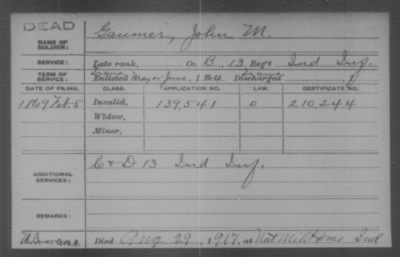 DEAD
NAME OF SOLDIER: Gaumer, John M.
SERVICE: Late rank, Co. B, 13, Reg't Ind Inf.
TERM OF SERVICE: Enlisted May or June, 1864 Discharged
DATE OF FILING. CLASS. APPLICATION NO. LAW. CERTIFICATE NO.
1869 Feb-5 Invalid, 139,541 O 210,244
Widow,
Minor,
ADDITIONAL SERVICES: C & D 13 Ind Inf.
REMARKS:
Died Aug 29, 1917, at Nat Mil Home Ind